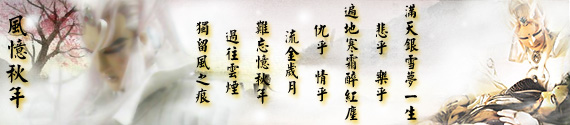 滿天銀雪夢一生
悲乎 樂乎
遍地寒霜醉紅塵
仇乎 情乎
流金歲月
難忘憶秋年
過往雲煙
獨留風之痕
風憶秋年